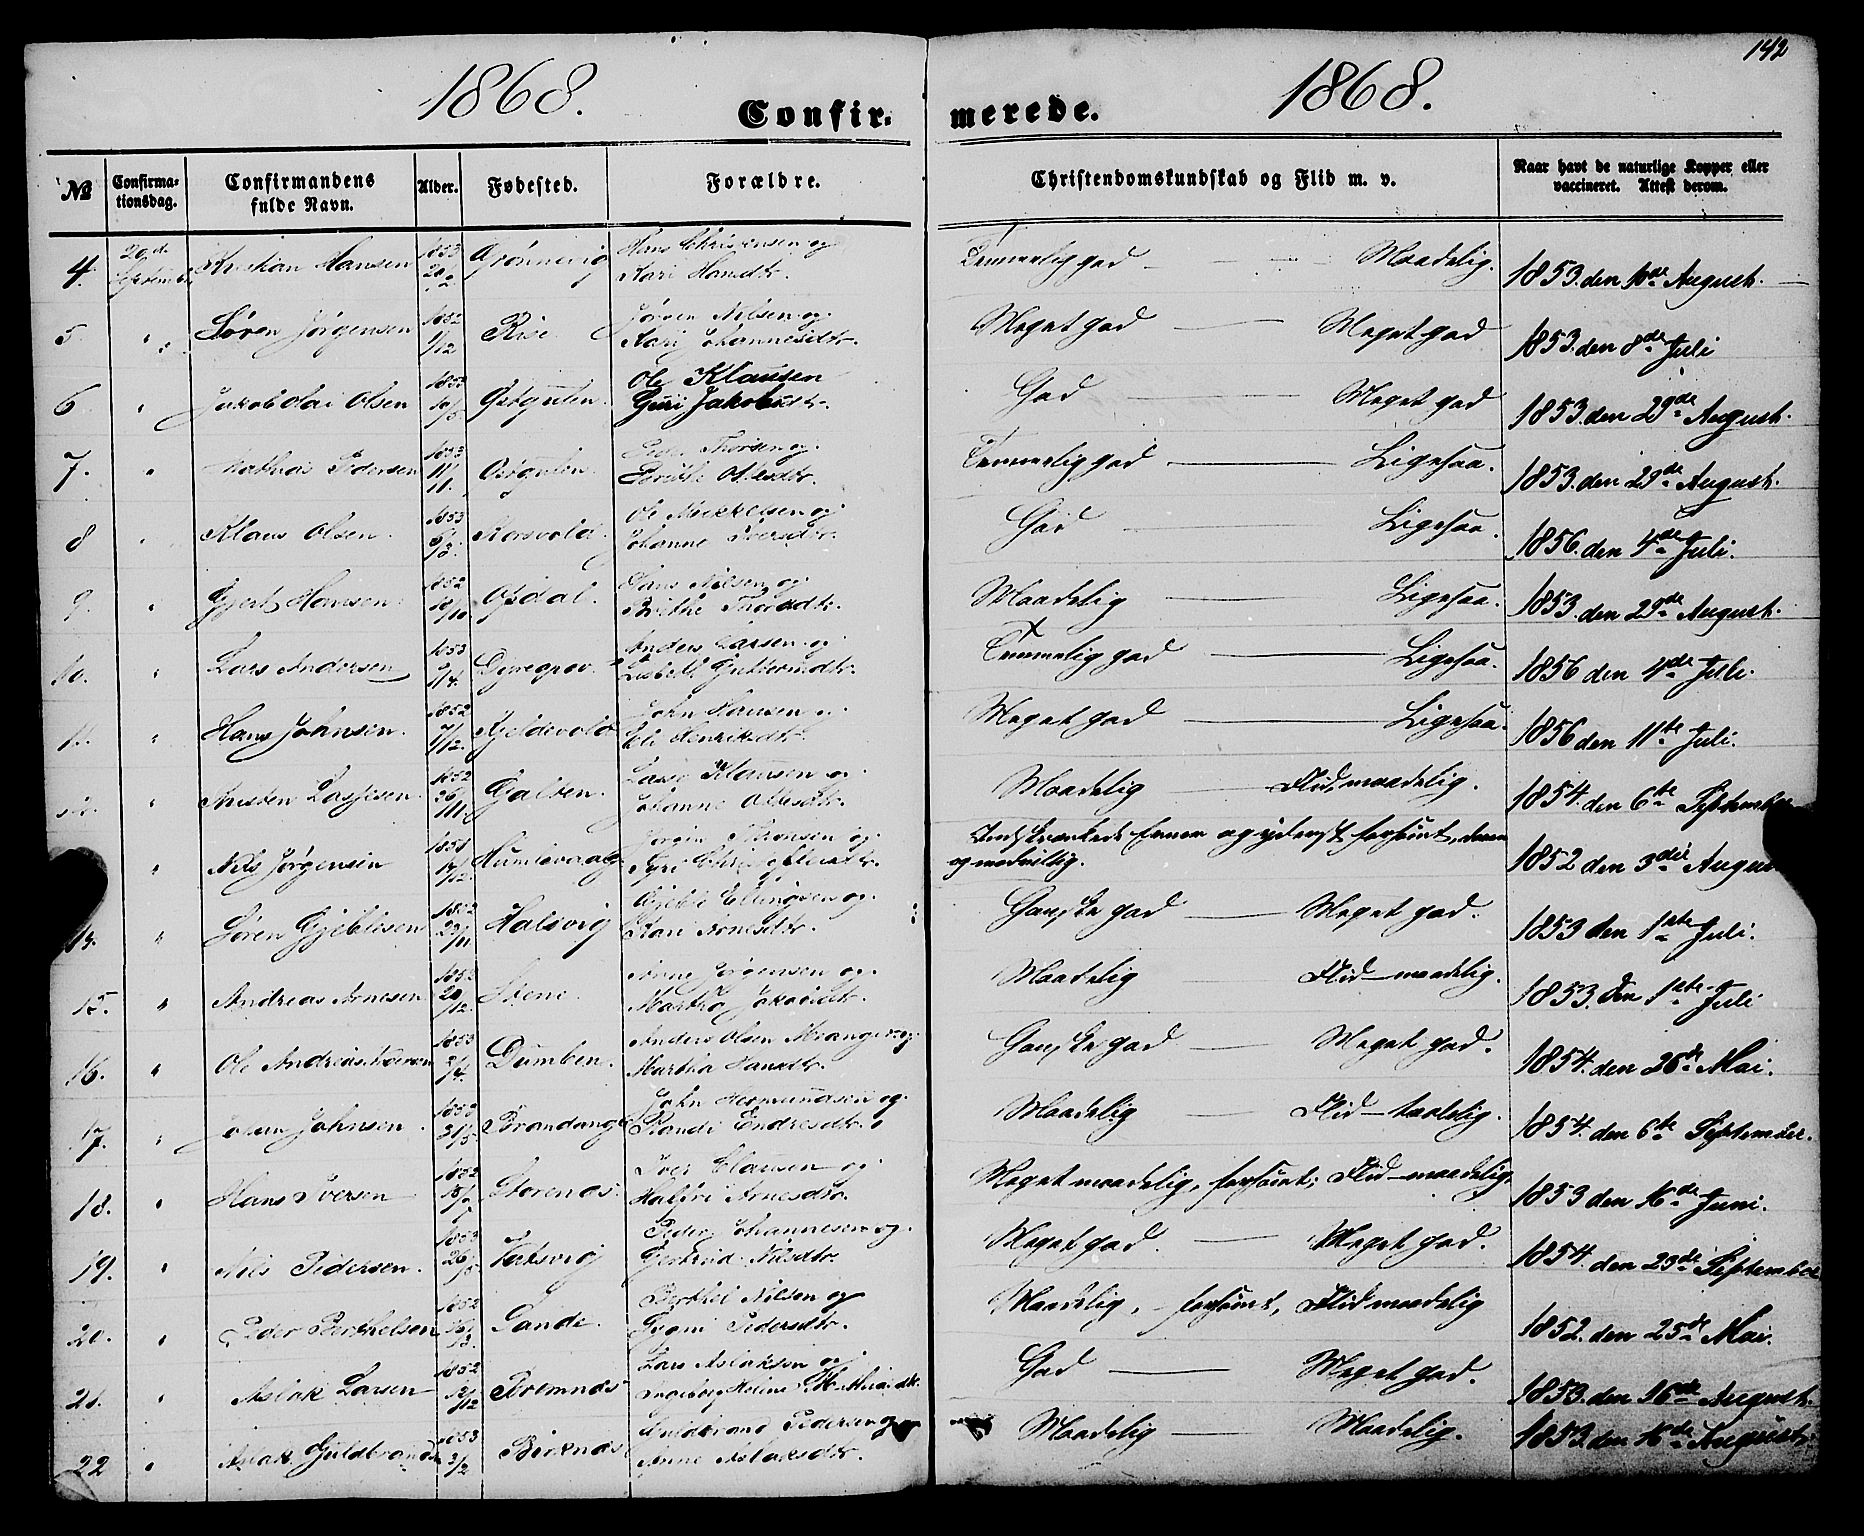 142
1868. Confir- merede. 1868.
№ Confirma-tionsdag. Confirmandens fulde Navn. Alder. Fødested. Forældre. Christendomskundskab og Flid m. v. Naar havt de naturlige Kopper eller vaccineret. Attest derom.
4. 29de September Kristian Hansen 1853 20/2 Grønnevig Hans Christensen og
Kari Hansdtr. Temmelig god — Maadelig. 1853. den 10de August.
5. " Søren Jørgensen 1852 1/12 Rise Jørgen Nilsen og
Kari Johannesdtr. Meget god — Meget god 1853. den 8de Juli
6 " Jakob Olai Olsen 1853 Ole Klausen
Guri Jakobsdtr. God — Meget god 1853. den 29de August.
7. " Mathias Pedersen 1853 Peder Thorsen og
Temmelig god — Ligesaa. 1853. den 29de August.
8 " Klaus Olsen. 1853 Korsvold. Ole Mikkelsen og
Johanne Iversdtr. God — Ligesaa. 1856. den 4de Juli.
9. " Gjert Hansen. 1852 Opdal. Hans Nilsen og
Brithe Maadelig — Ligesaa. 1853. den 29de August.
10. " Lars Andersen 1853 9/4. Dyregrov Anders Larsen og
Lisbeth Guttormsdtr. Temmelig god — Ligesaa. 1856 den 4de Juli.
11. " Hans Johnsen. 1852 7/12. Kjeldevold John Hansen og
Eli Henriksdtr. Meget god — Ligesaa. 1856 den 11te Juli.
" 1852 26/11. Galten. Lasse Klausen og
Johanne Maadelig — Flid, maadelig. 1854. den 6te September
" Nils Jørgensen 1851 Humlevaag Jørgen og
Indskrænkede Evner og yderst forsømt,
og modvillig. 1852 den 3die August
14. " Søren Gjeblesen 1852 29/11 Halsvig Gjeble Ellingsen og
Kari Arnesdtr. Ganske god — Meget god. 1853 den 1ste Juli.
15. " Andreas Arnesen 1852 20/12. Stene. Arne Jørgensen og
Martha Jakobsdtr. Maadelig — Flid — maadelig. 1853. den 1ste Juli
16. " Ole Andreas 1853 2/4. Dumben. Anders Olsen og
Martha Hansdtr. Ganske god — Meget god. 1854. den 26de Mai.
17. " Johan Johnsen. 1853 31/5 Brandanger John Hermundsen og
Randi Endresdtr. Maadelig — Flid — taalelig. 1854. den 6te September.
18. " Hans Iversen 1852 Storenøs. Iver Clausen og
Arnesdtr. Meget maadelig, forsømt; Flid — maadelig. 1853 den 16de Juni.
19. " Nils Pedersen. 1853 26/5 Peder Johannesen og
Gjertrud Nilsdtr. Meget god. — Meget god. 1854. den 23de September
20. " Peder Berthelsen 1852 Sande. Berthel Nilsen og
Pedersdtr. Maadelig, forsømt, Flid maadelig 1852. den 25de Mai.
21. " Aslak Larsen 1852 12/12 Bremnæs Lars Aslaksen og
Ingeborg Meline God — Meget god. 1853. den 16de August.
22 " Aslak Guldbrands. 1853 3/2 Birknæs Guldbrand Pedersen og
Anne Aslaksdtr. Maadelig — Maadelig. 1853. den 16de August.